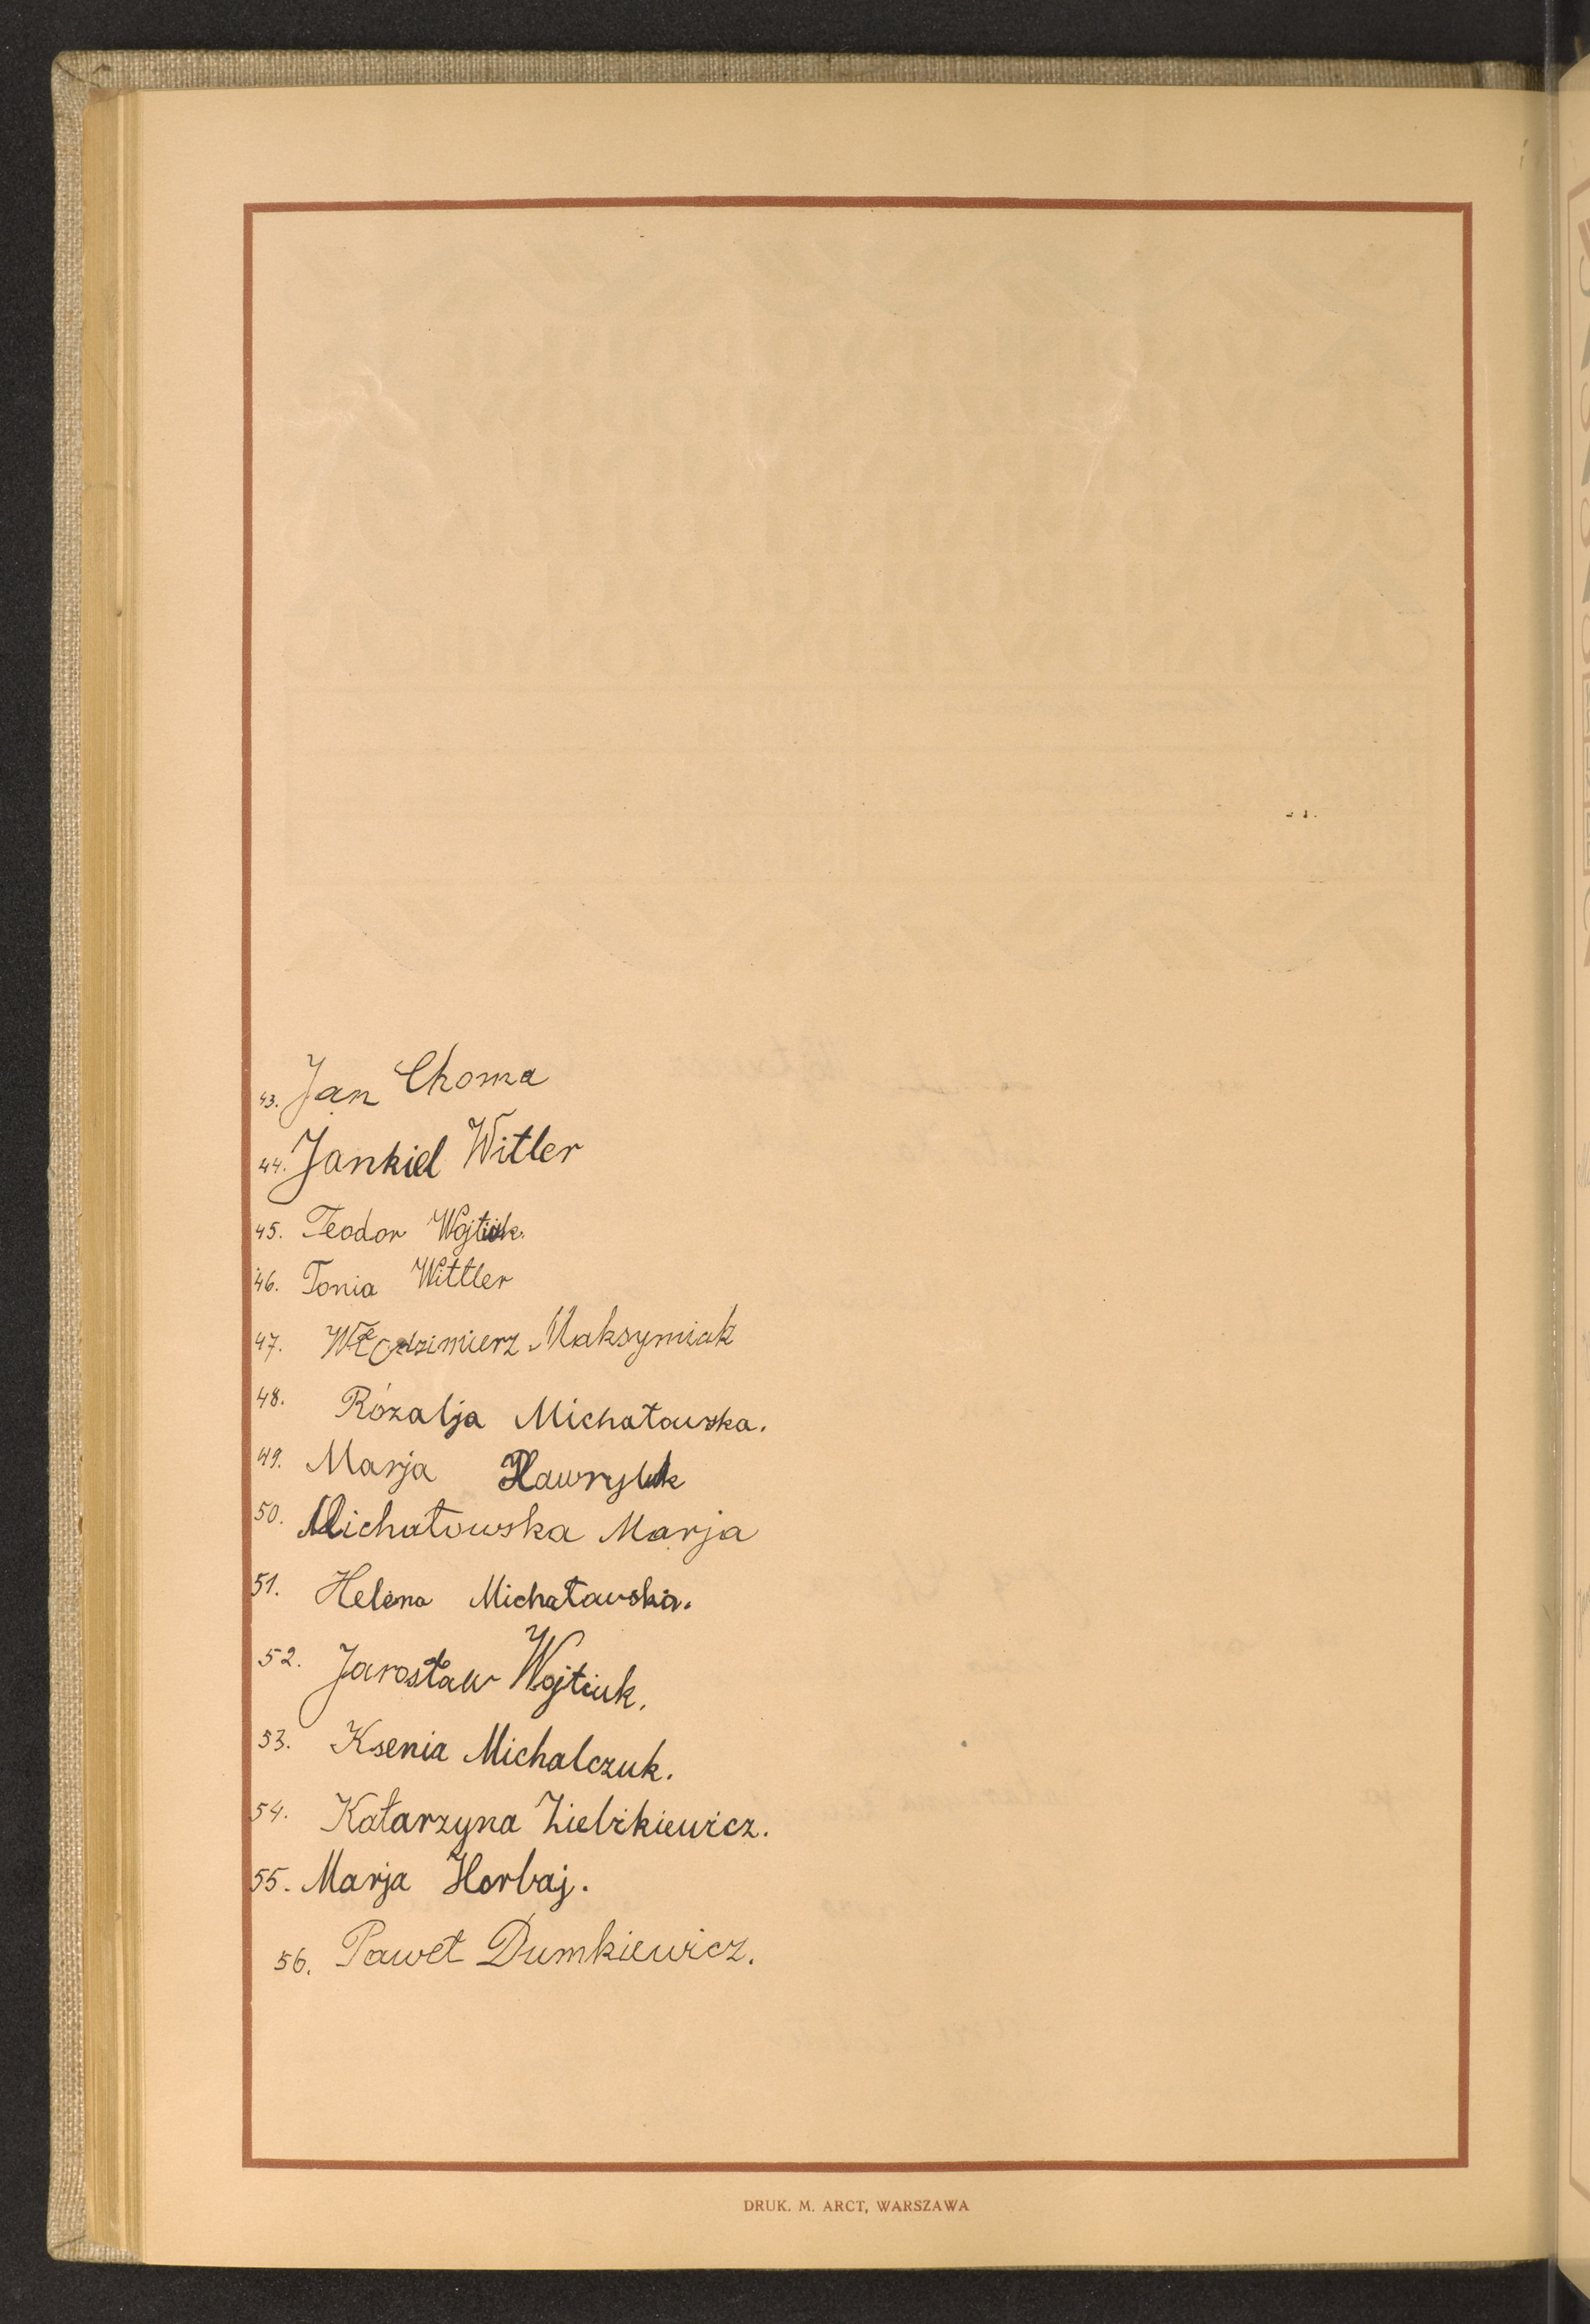 43. Jan Choma
44. Jankiel Witler
45. Teodor Wojtiuk.
46. Tonia Wittler
47. Włodzimierz Maksymiak
48. Rózalja Michałowska.
49. Marja Hawryluk
50. Michałowska Marja
51. Helena Michałowska.
52. Jarosław Wojtiuk.
53. Ksenia Michalczuk.
54. Katarzyna Zielikiewicz.
55. Marja Horbaj.
56. Paweł Dumkiewicz.
DRUK. M. ARCT, WARSZAWA